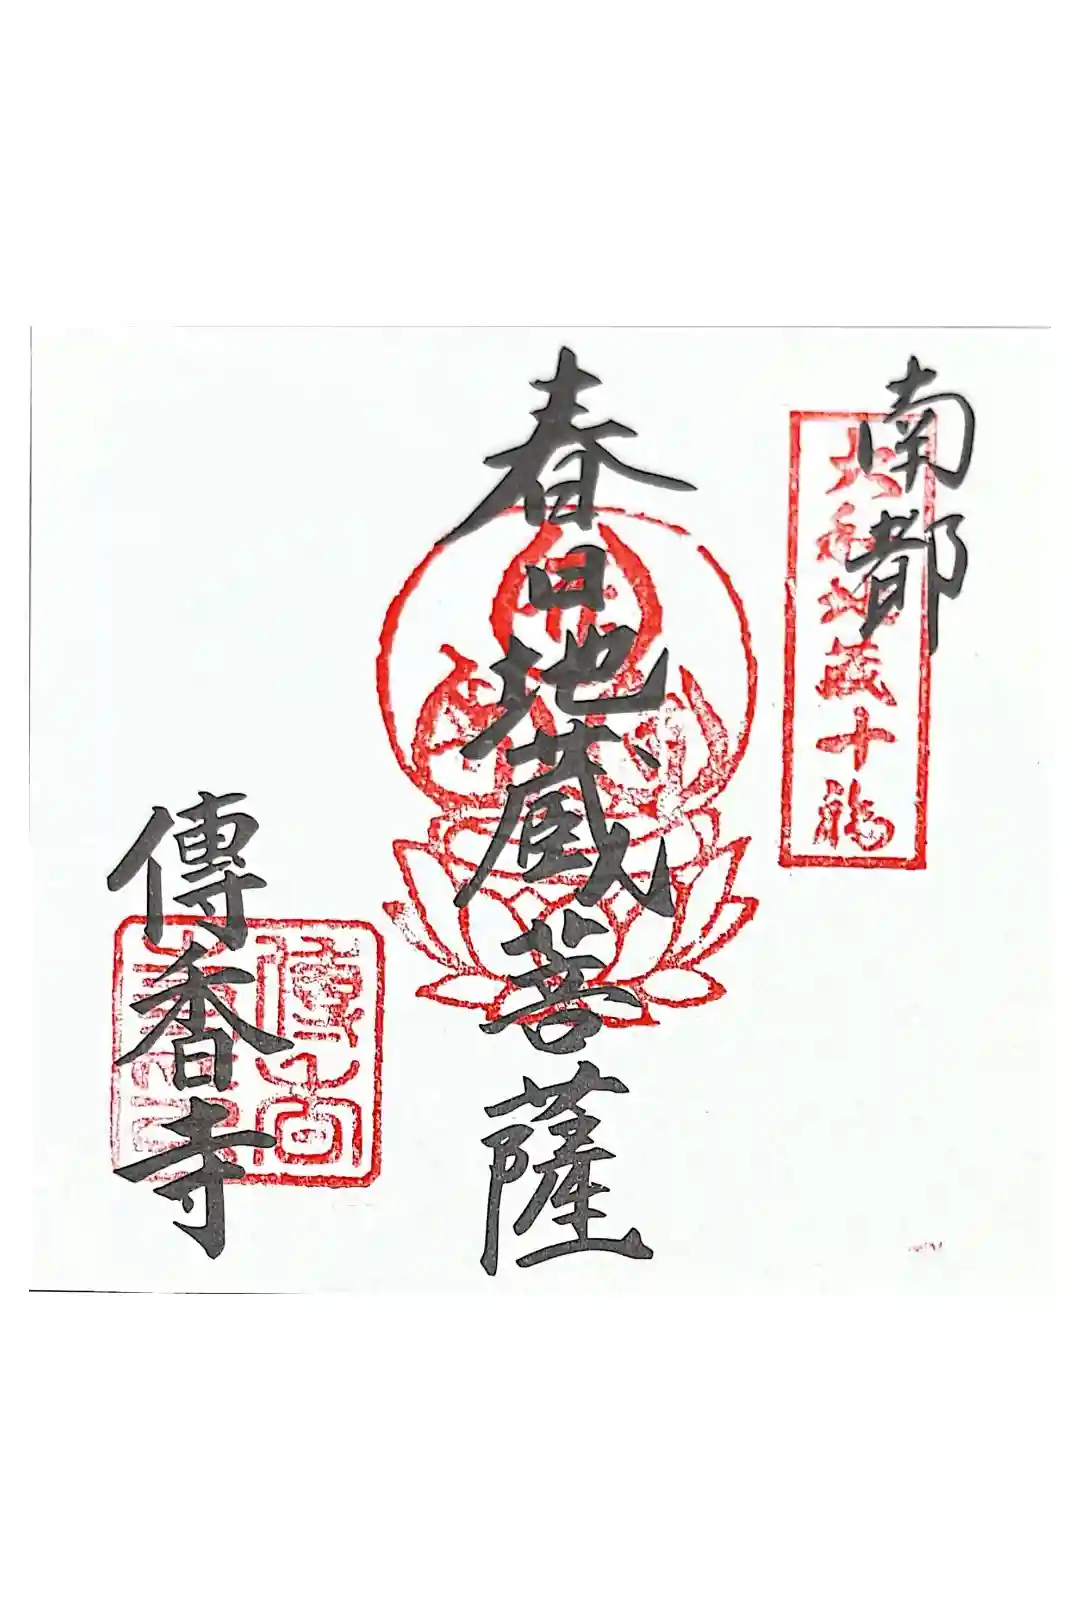 南都
大和地蔵十福
春日地蔵菩薩
傳香寺